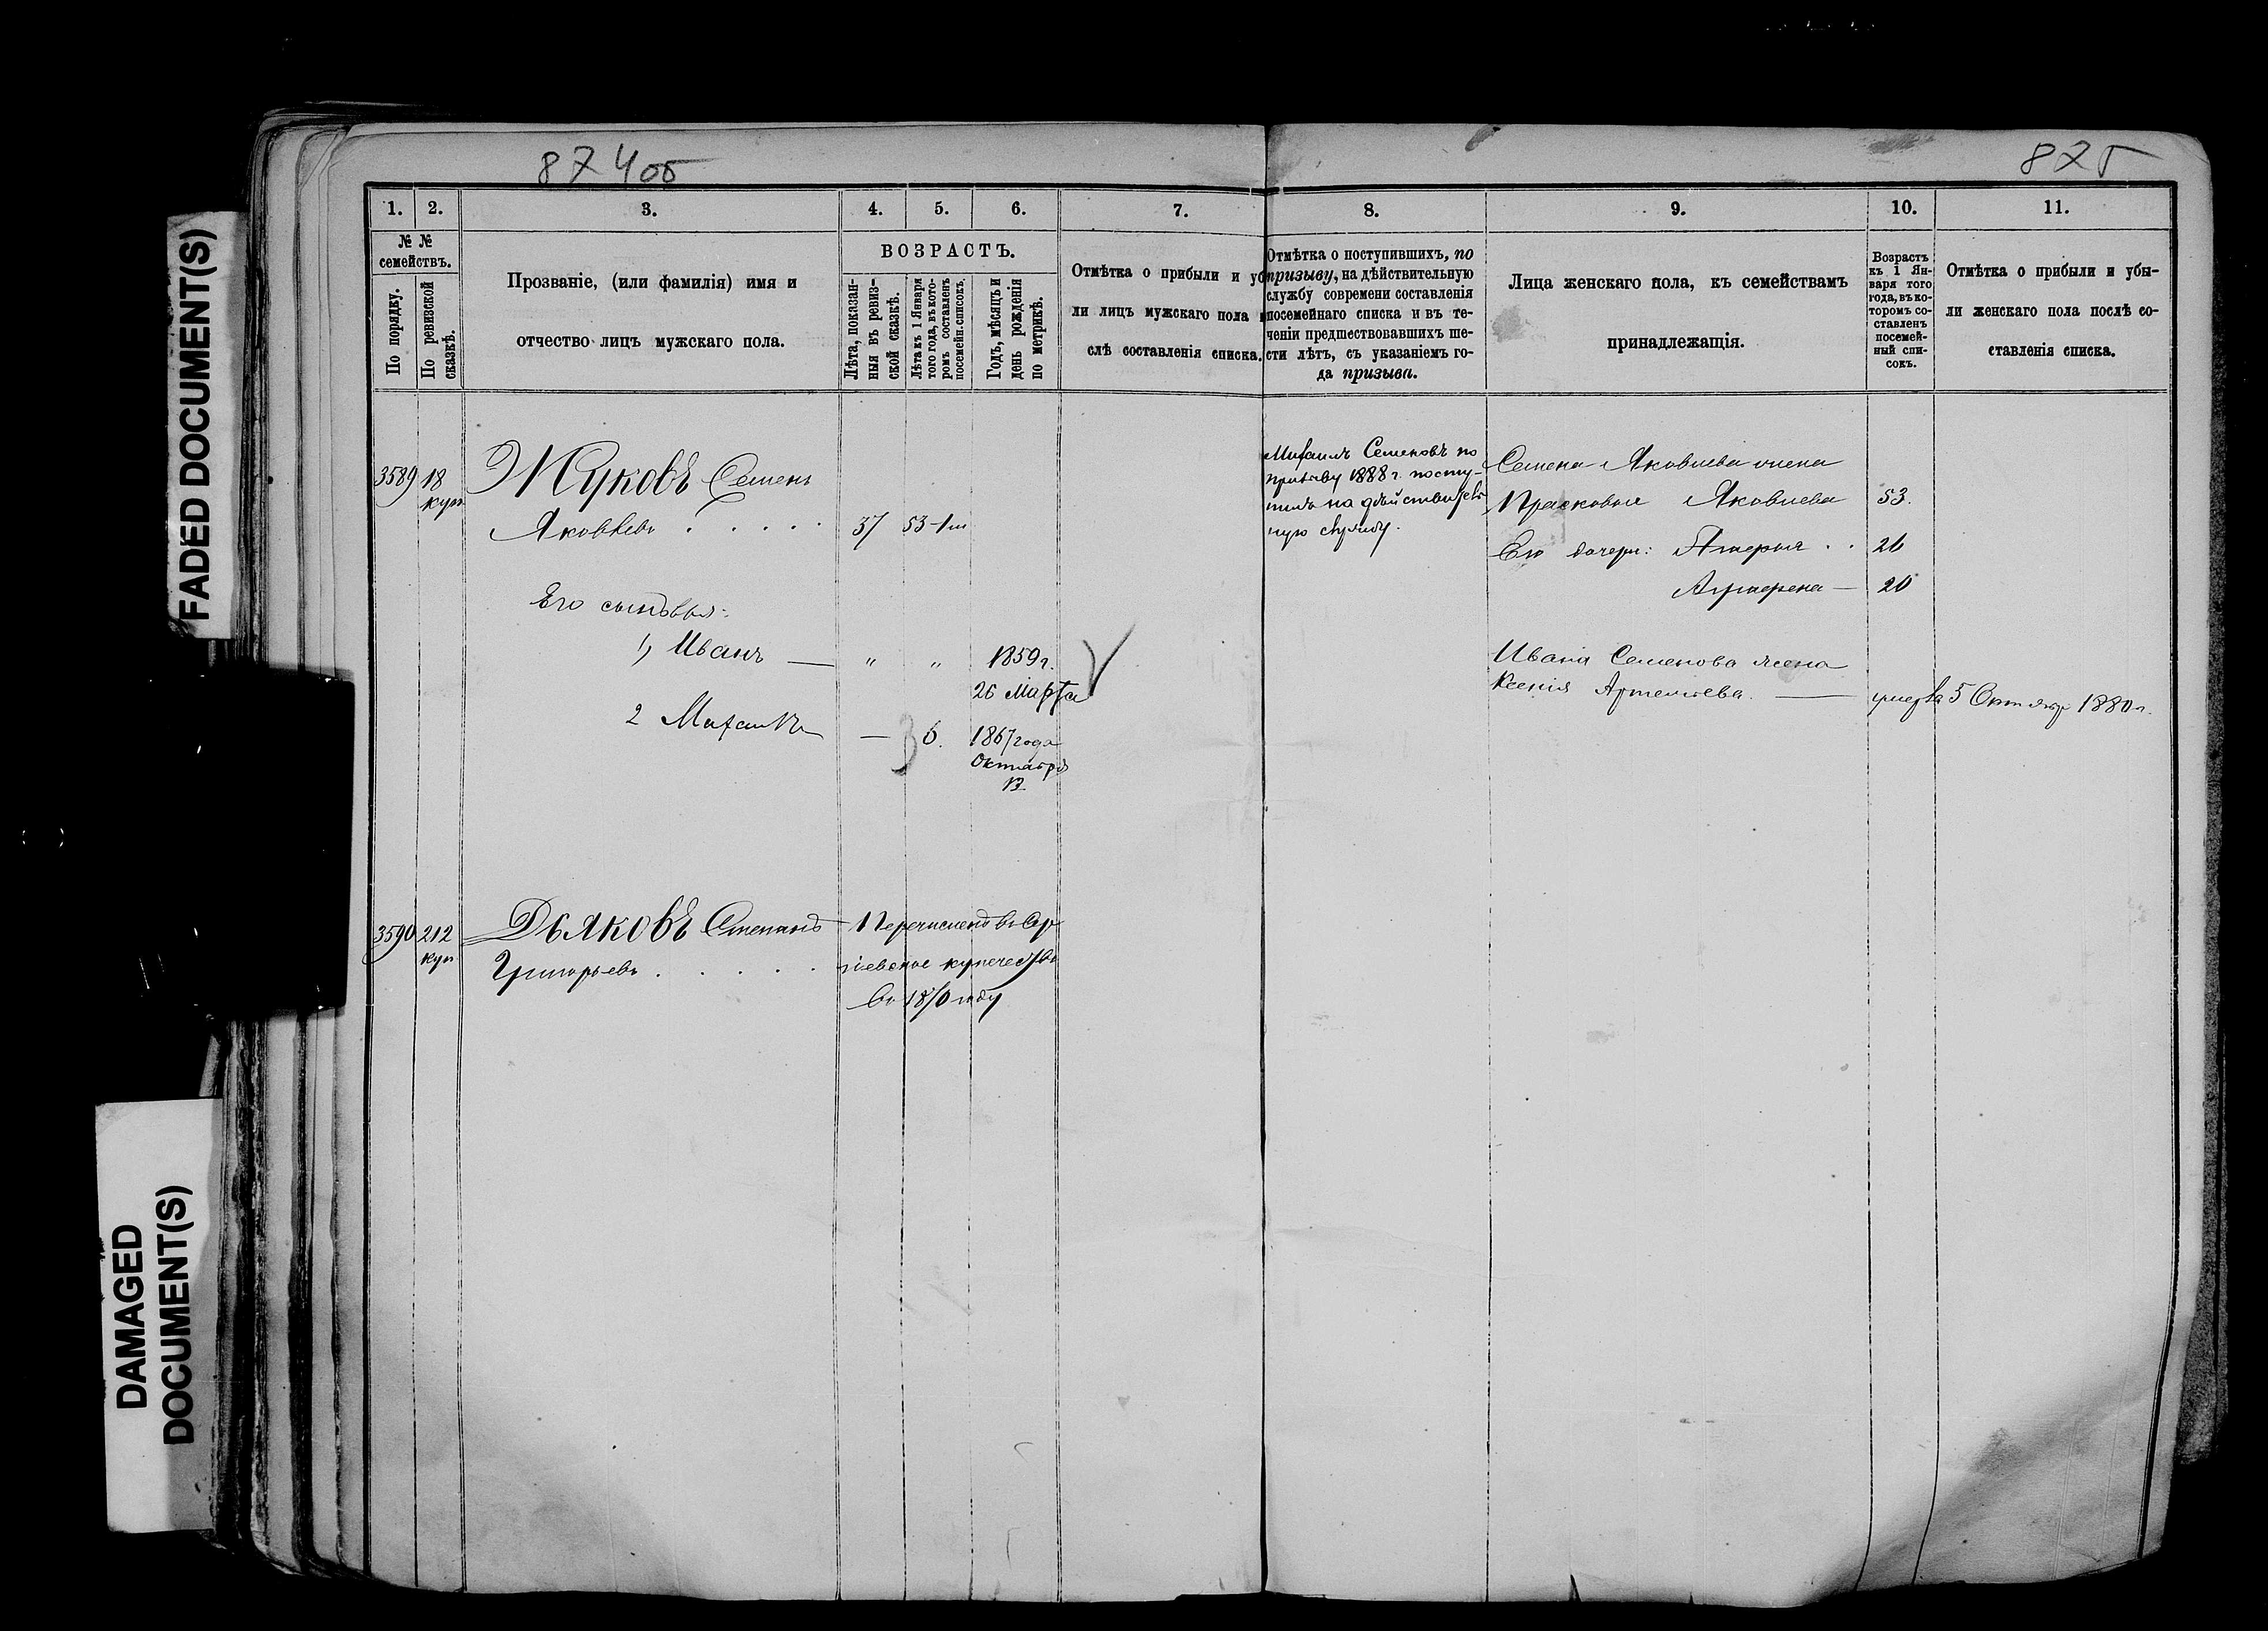 FADED DOCUMENT(S)
DAMAGED
DOCUMENT(S)
874об
875
1.
2.
3.
4.
5.
6.
7.
8.
9.
10.
11.
№ №
семействъ.
По порядку.
По ревизской
сказкѣ.
Прозваніе, (или фамилія) имя и
отчество лицъ мужскаго пола.
ВОЗРАСТЪ.
Лѣта, показан-
ныя въ ревиз-
ской сказкѣ.
Лѣта къ 1 Января
того года, въ кото-
ромъ составленъ
посемейн. списокъ.
Годъ, мѣсяцъ и
день рожденія
по метрикѣ.
Отмѣтка о прибыли и уб
ли лицъ мужскаго пола
слѣ составленія списка.
Отмѣтка о поступившихъ, по
призыву, на дѣйствительную
службу современи составленія
посемейнаго списка и въ те-
ченіи предшествовавшихъ ше-
сти лѣтъ, съ указаніемъ го-
да призыва.
Лица женскаго пола, къ семействамъ
принадлежащія.
Возрастъ
къ 1 Ян-
варя того
года, въ ко-
торомъ со-
ставленъ
посемей-
ный спи-
сокъ.
Отмѣтка о прибыли и убы-
ли женскаго пола послѣ со-
ставленія списка.
3589 18 Жуковъ Семенъ
куп
Яковлевъ . . . . . 37 53
Его сыновья:
1) Иванъ — " " 1859 г.
26 Марта
2 Михаилъ — 6. 1867 года
Октября
Михаилъ Семеновъ по
призыву 1888 г. посту-
пилъ на дѣйствитель
ную службу.
Семена Яковлева жена
Прасковья Яковлева 53.
Его дочери: . . 26
— 20
Ивана Семенова жена
Ксенія Артемьева. — умерла 5 Октяб 1880 г.
3590 212 Дьяковъ Степанъ Перечисленъ въ Сер
куп
Григорьевъ . . . . . гіевское купечество
въ 1870 году